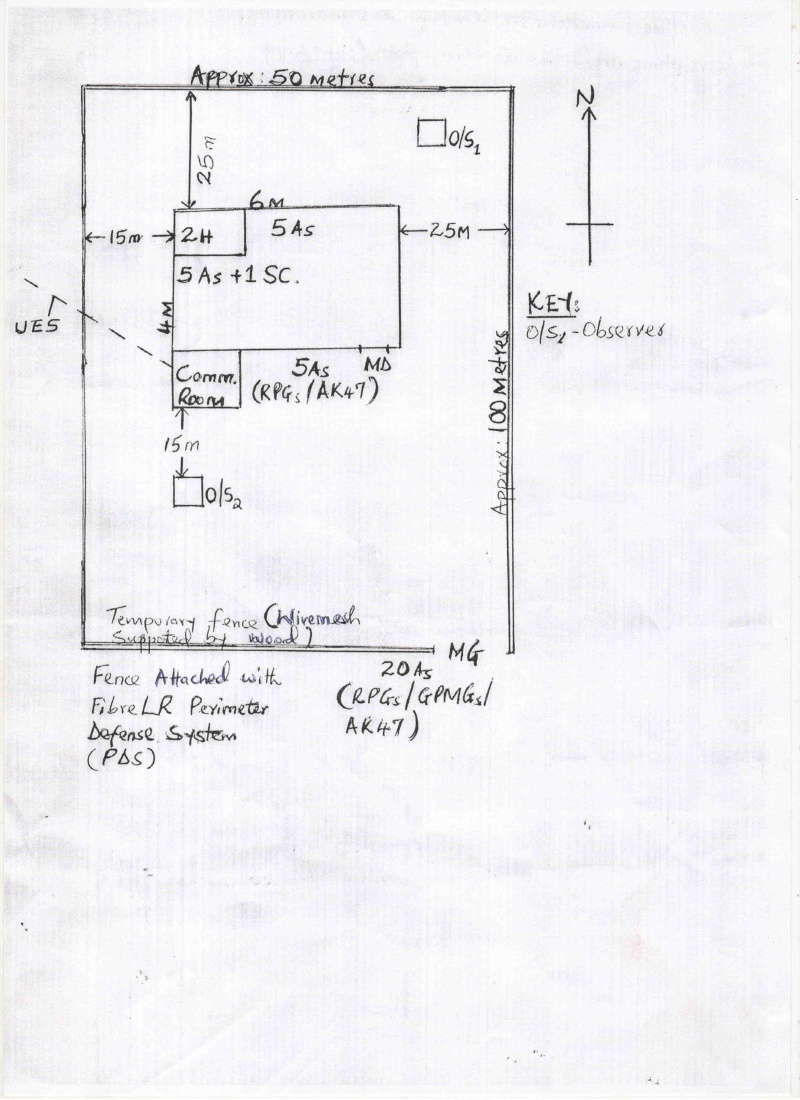 Approx: 50 metres
N
O/S1
25m
6M
15m
2H
5 As
25M
5 As +1 SC.
UES
4M
KEY:
O/S2-Observer
Comm.
Room
5As
MD
(RPGs/AK47)
Approx: 100 Metres
15m
O/S2
Temporary fence (Wiremesh
Supported by Wood)
MG
20As
(RPGs/GPMGs/
AK47)
Fence Attached with
FibreLR Perimeter
Defense System
(PDS)